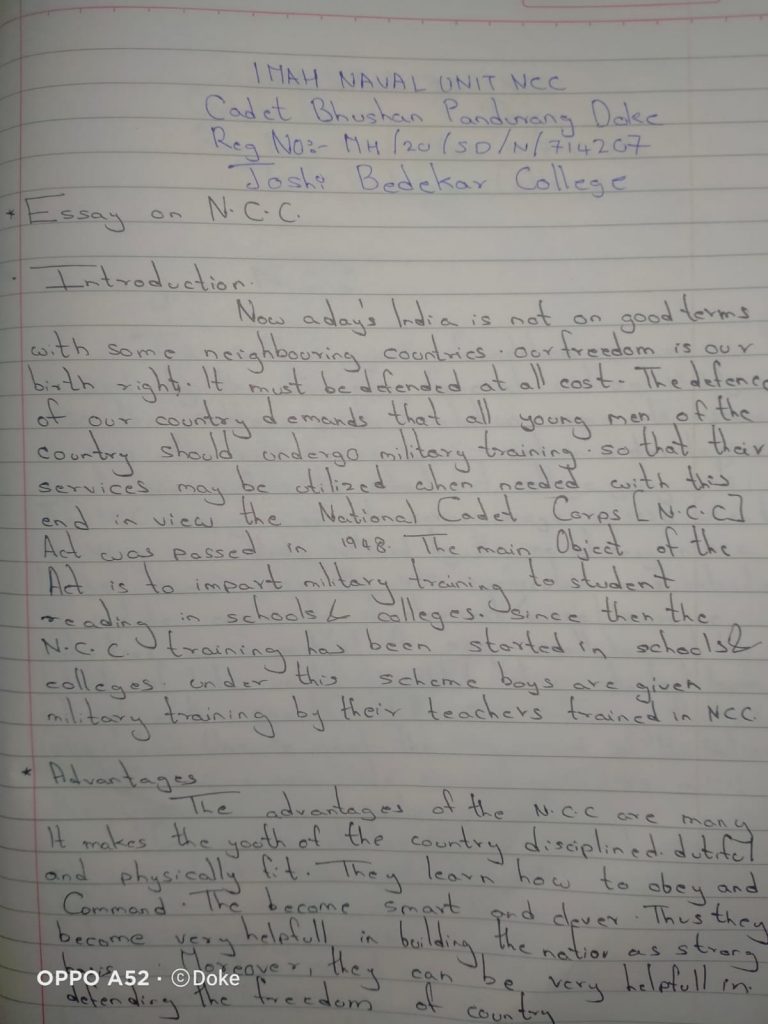 1MAH NAVAL UNIT NCC
Cadet Bhushan Pandurang Doke
Reg No:- MH/20/SD/N/714267
Joshi Bedekar College
* Essay on N.C.C.
· Introduction.
Now aday's India is not on good terms
with some neighbouring countries. our freedom is our
birth right. It must be defended at all cost. The defence
of our country demands that all young men of the
country should undergo military training. so that their
services may be utilized when needed with this
end in view the National Cadet Corps [N.C.C]
Act was passed in 1948. The main Object of the
Act is to impart military training to student
reading in schools & colleges. Since then the
N.C.C. training has been started in schools &
colleges. under this scheme boys are given
military training by their teachers trained in NCC.
* Advantages
The advantages of the N.C.C are many
It makes the youth of the country disciplined. dutiful
and physically fit. They learn how to obey and
Command. The become smart and clever. Thus they
become very helpfull in building the nation as strong
Moreover, they can be very helpfull in.
defending the freedom of country
OPPO A52 · ©Doke